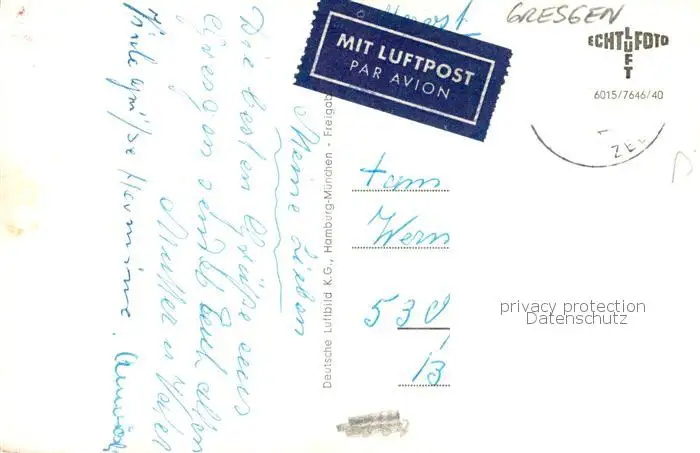 GRESGEN
Luftpost
MIT LUFTPOST
PAR AVION
ECHT LUFT FOTO
6015/7646/40
ZELL
Meine Lieben
Die besten Grüße aus
Gresgen sendet Euch allen
Mutter u Vater
Viele Grüße Hermine.
Deutsche Luftbild K.G., Hamburg-München - Freigab
Fam
Wern
530
13
privacy protection
Datenschutz